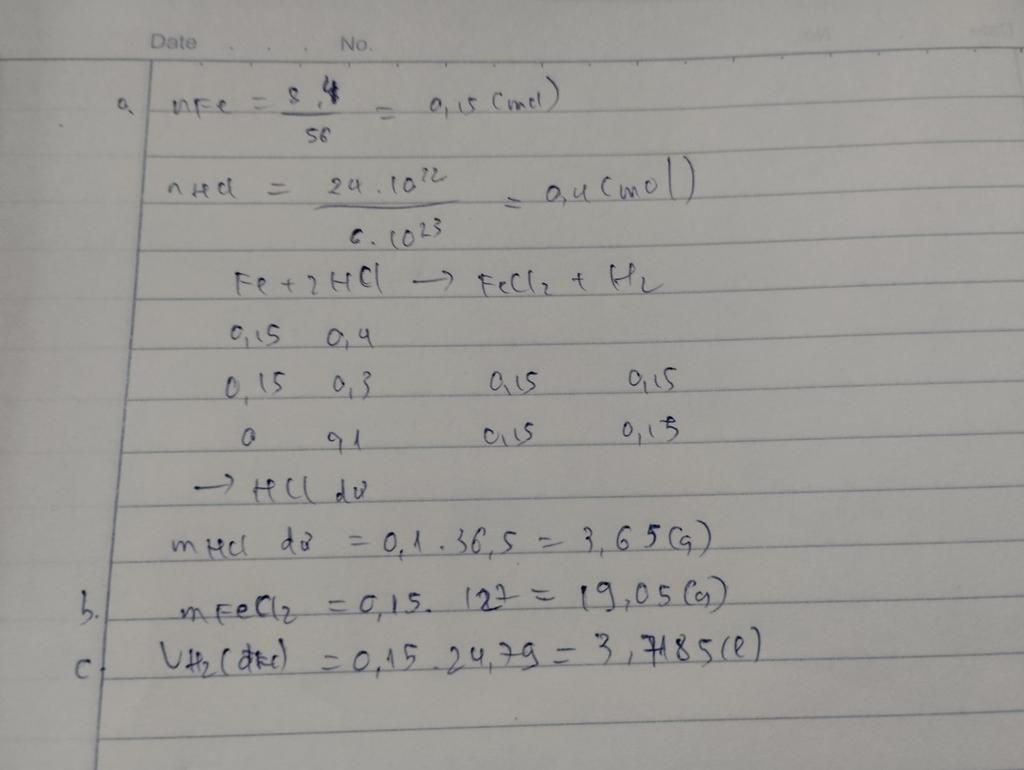 Date . . . No.
a, nFe = 8,4 / 56 = 0,15 (mol)
nHCl = 24.10²² / 6.10²³ = 0,4 (mol)
Fe + 2HCl → FeCl₂ + H₂
0,15 0,4
0,15 0,3 0,15 0,15
0 0,1 0,15 0,15
→ HCl dư
mHCl dư = 0,1.36,5 = 3,65 (g)
b. mFeCl₂ = 0,15. 127 = 19,05 (g)
c, VH₂ (đkc) = 0,15.24,79 = 3,7185 (l)